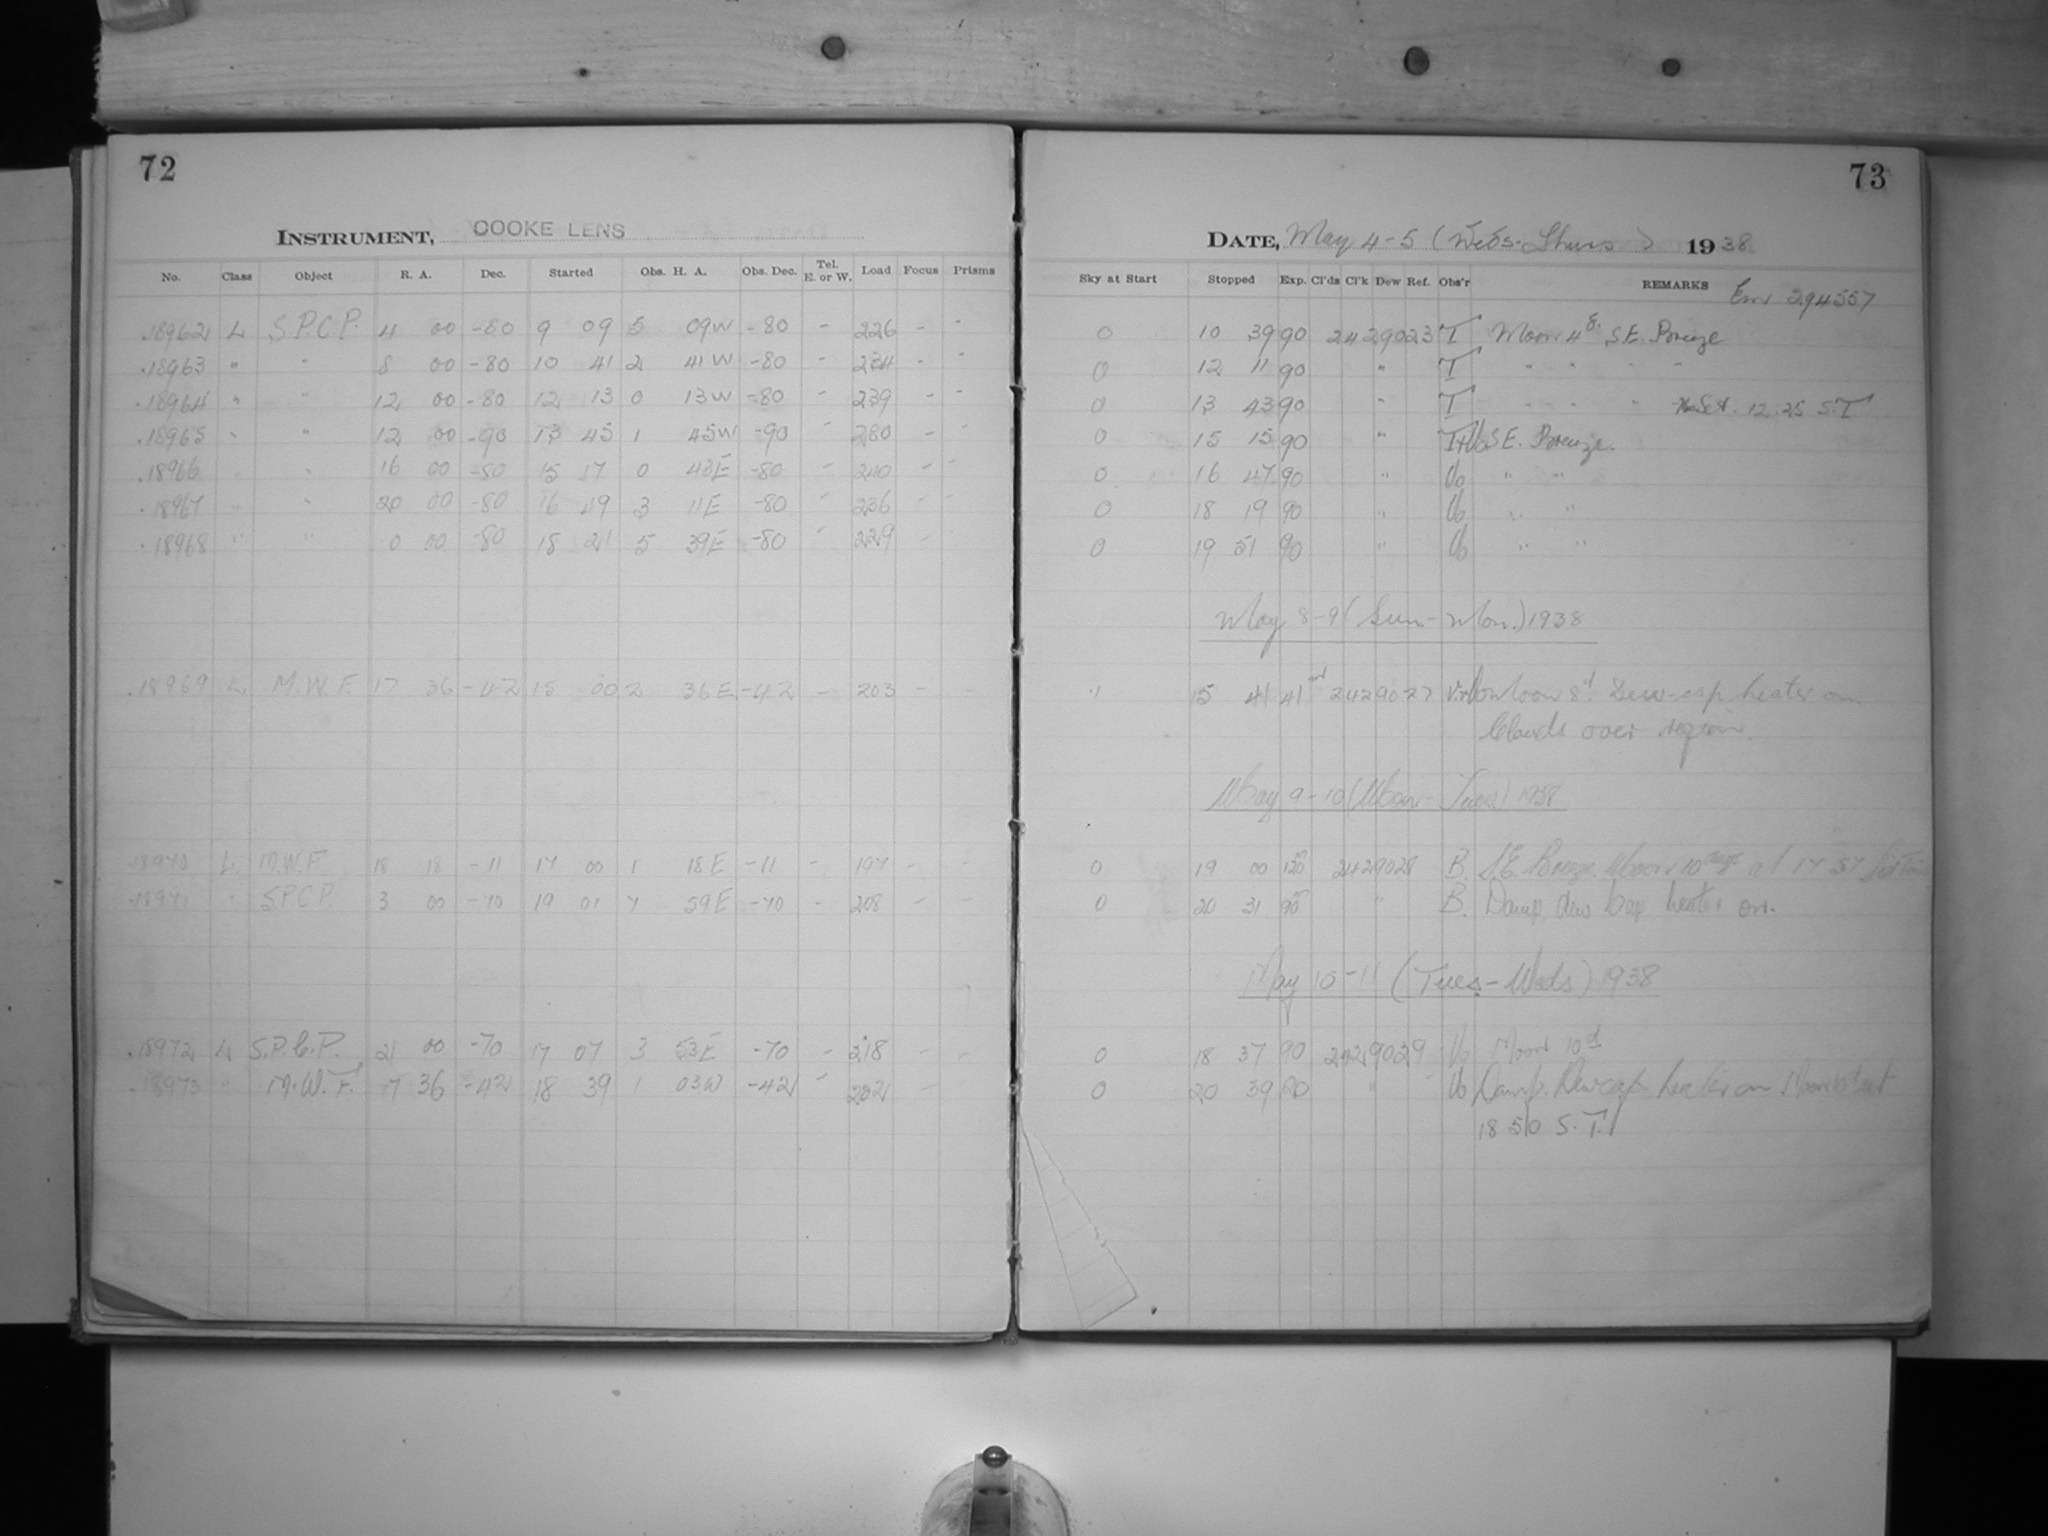 72
INSTRUMENT, COOKE LENS
No. Class Object R. A. Dec. Started Obs. H. A. Obs. Dec. Tel. E. or W. Load Focus Prisms
.18962 L S.P.C.P. 4 00 -80 9 09 5 09W -80 - 226 - -
.18963 " " 8 00 -80 10 41 2 41W -80 - 234 - -
.18964 " " 12 00 -80 12 13 0 13W -80 - 239 - -
.18965 " " 12 00 -90 13 45 1 45W -90 - 280 - -
.18966 " " 16 00 -80 15 17 0 43E -80 - 240 - -
.18967 " " 20 00 -80 16 49 3 11E -80 - 236 - -
.18968 " " 0 00 -80 18 21 5 39E -80 - 229 - -
.18969 L M.W.F. 17 36 -42 15 00 2 36E -42 - 203 - -
.18970 L M.W.F. 18 18 -11 17 00 1 18E -11 - 197 - -
.18971 " S.P.C.P. 3 00 -70 19 01 7 59E -70 - 208 - -
.18972 L S.P.C.P. 21 00 -70 17 07 3 53E -70 - 218 - -
.18973 " M.W.F. 17 36 -42 18 39 1 03W -42 - 202 -
73
DATE, May 4-5 (Weds-Thurs) 1938
Sky at Start Stopped Exp. Cl'ds Cl'k Dew Ref. Obs'r REMARKS
294557
0 10 39 90 2429023 T Moon 4 S.E. Breeze
0 12 11 90 " T " " " "
0 13 43 90 " T " " " Set. 12.25 S.T
0 15 15 90 " S.E. Breeze.
0 16 47 90 " " "
0 18 19 90 " " "
0 19 51 90 " " "
May 8-9 (Sun-Mon.) 1938
15 41 41 2429027 Moon 8d. Dew-cap heater on
Clouds over region.
May 9-10 (Mon-Tues) 1938
0 19 00 120 2429028 B. S.E. Breeze. Moon 10 days at 17 57
0 20 31 90 " B. Damp, dew cap heater on.
May 10-11 (Tues-Weds) 1938
0 18 37 90 2429029 Moon 10d
0 20 39 " Damp. Dew cap heater on Moon set
18 50 S.T.